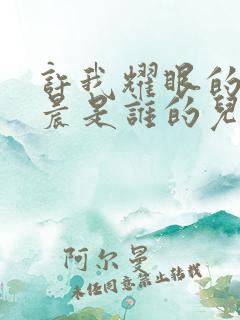 許我耀眼的
晨是誰的兒
阿尔曼
未经同意禁止转载